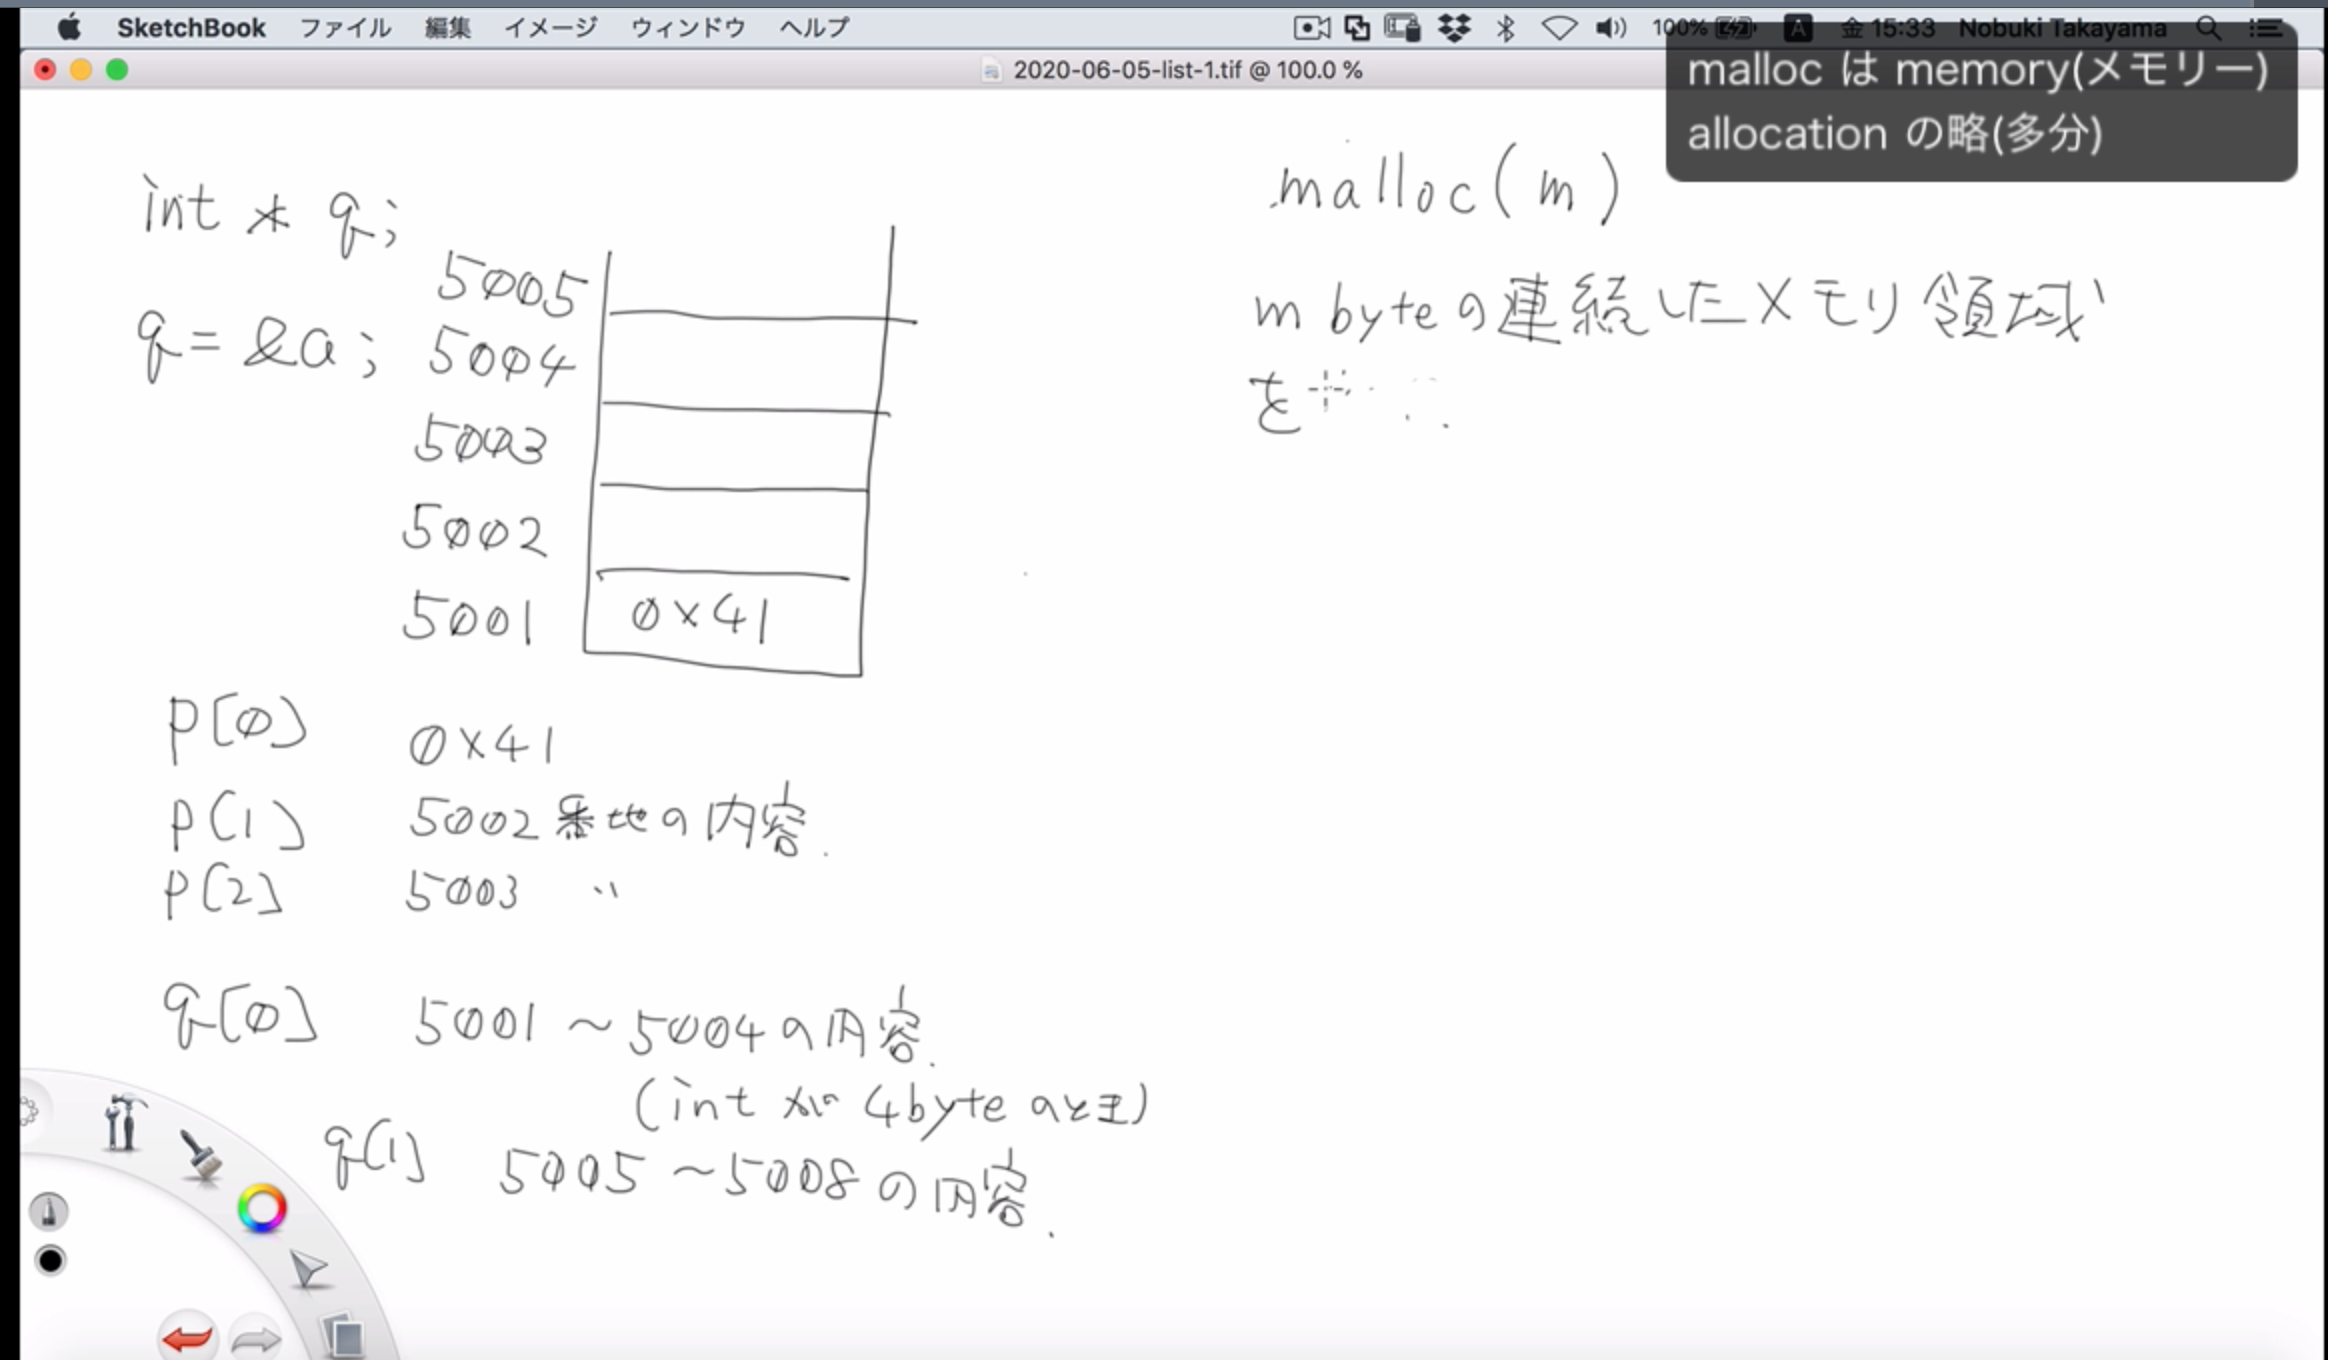 SketchBook ファイル 編集 イメージ ウィンドウ ヘルプ
100% A 金 15:33 Nobuki Takayama
2020-06-05-list-1.tif @ 100.0 %
malloc は memory(メモリー)
allocation の略(多分)
int * q;
q = &a;
5005
5004
5003
5002
5001 0x41
p[0] 0x41
p[1] 5002番地の内容.
p[2] 5003 〃
q[0] 5001 ~ 5004の内容.
(int が 4byte のとき)
q[1] 5005 ~ 5008 の内容.
malloc(m)
m byteの連続したメモリ領域
を